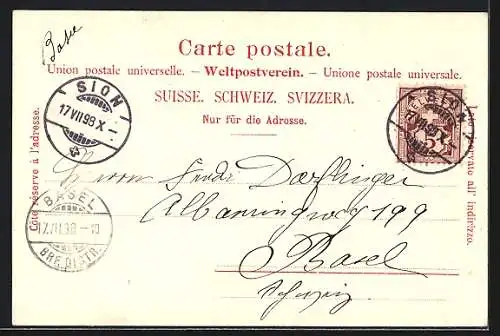 Carte postale.
Union postale universelle. – Weltpostverein. – Unione postale universale.
SUISSE. SCHWEIZ. SVIZZERA.
Nur für die Adresse.
Côté réservé à l'adresse.
Lato riservato all' indirizzo.
SION
17 VII 98 X–
SION
BASEL
17.VII.98 – 10
BRF. DISTR.
Herrn Däflinger
199
Basel